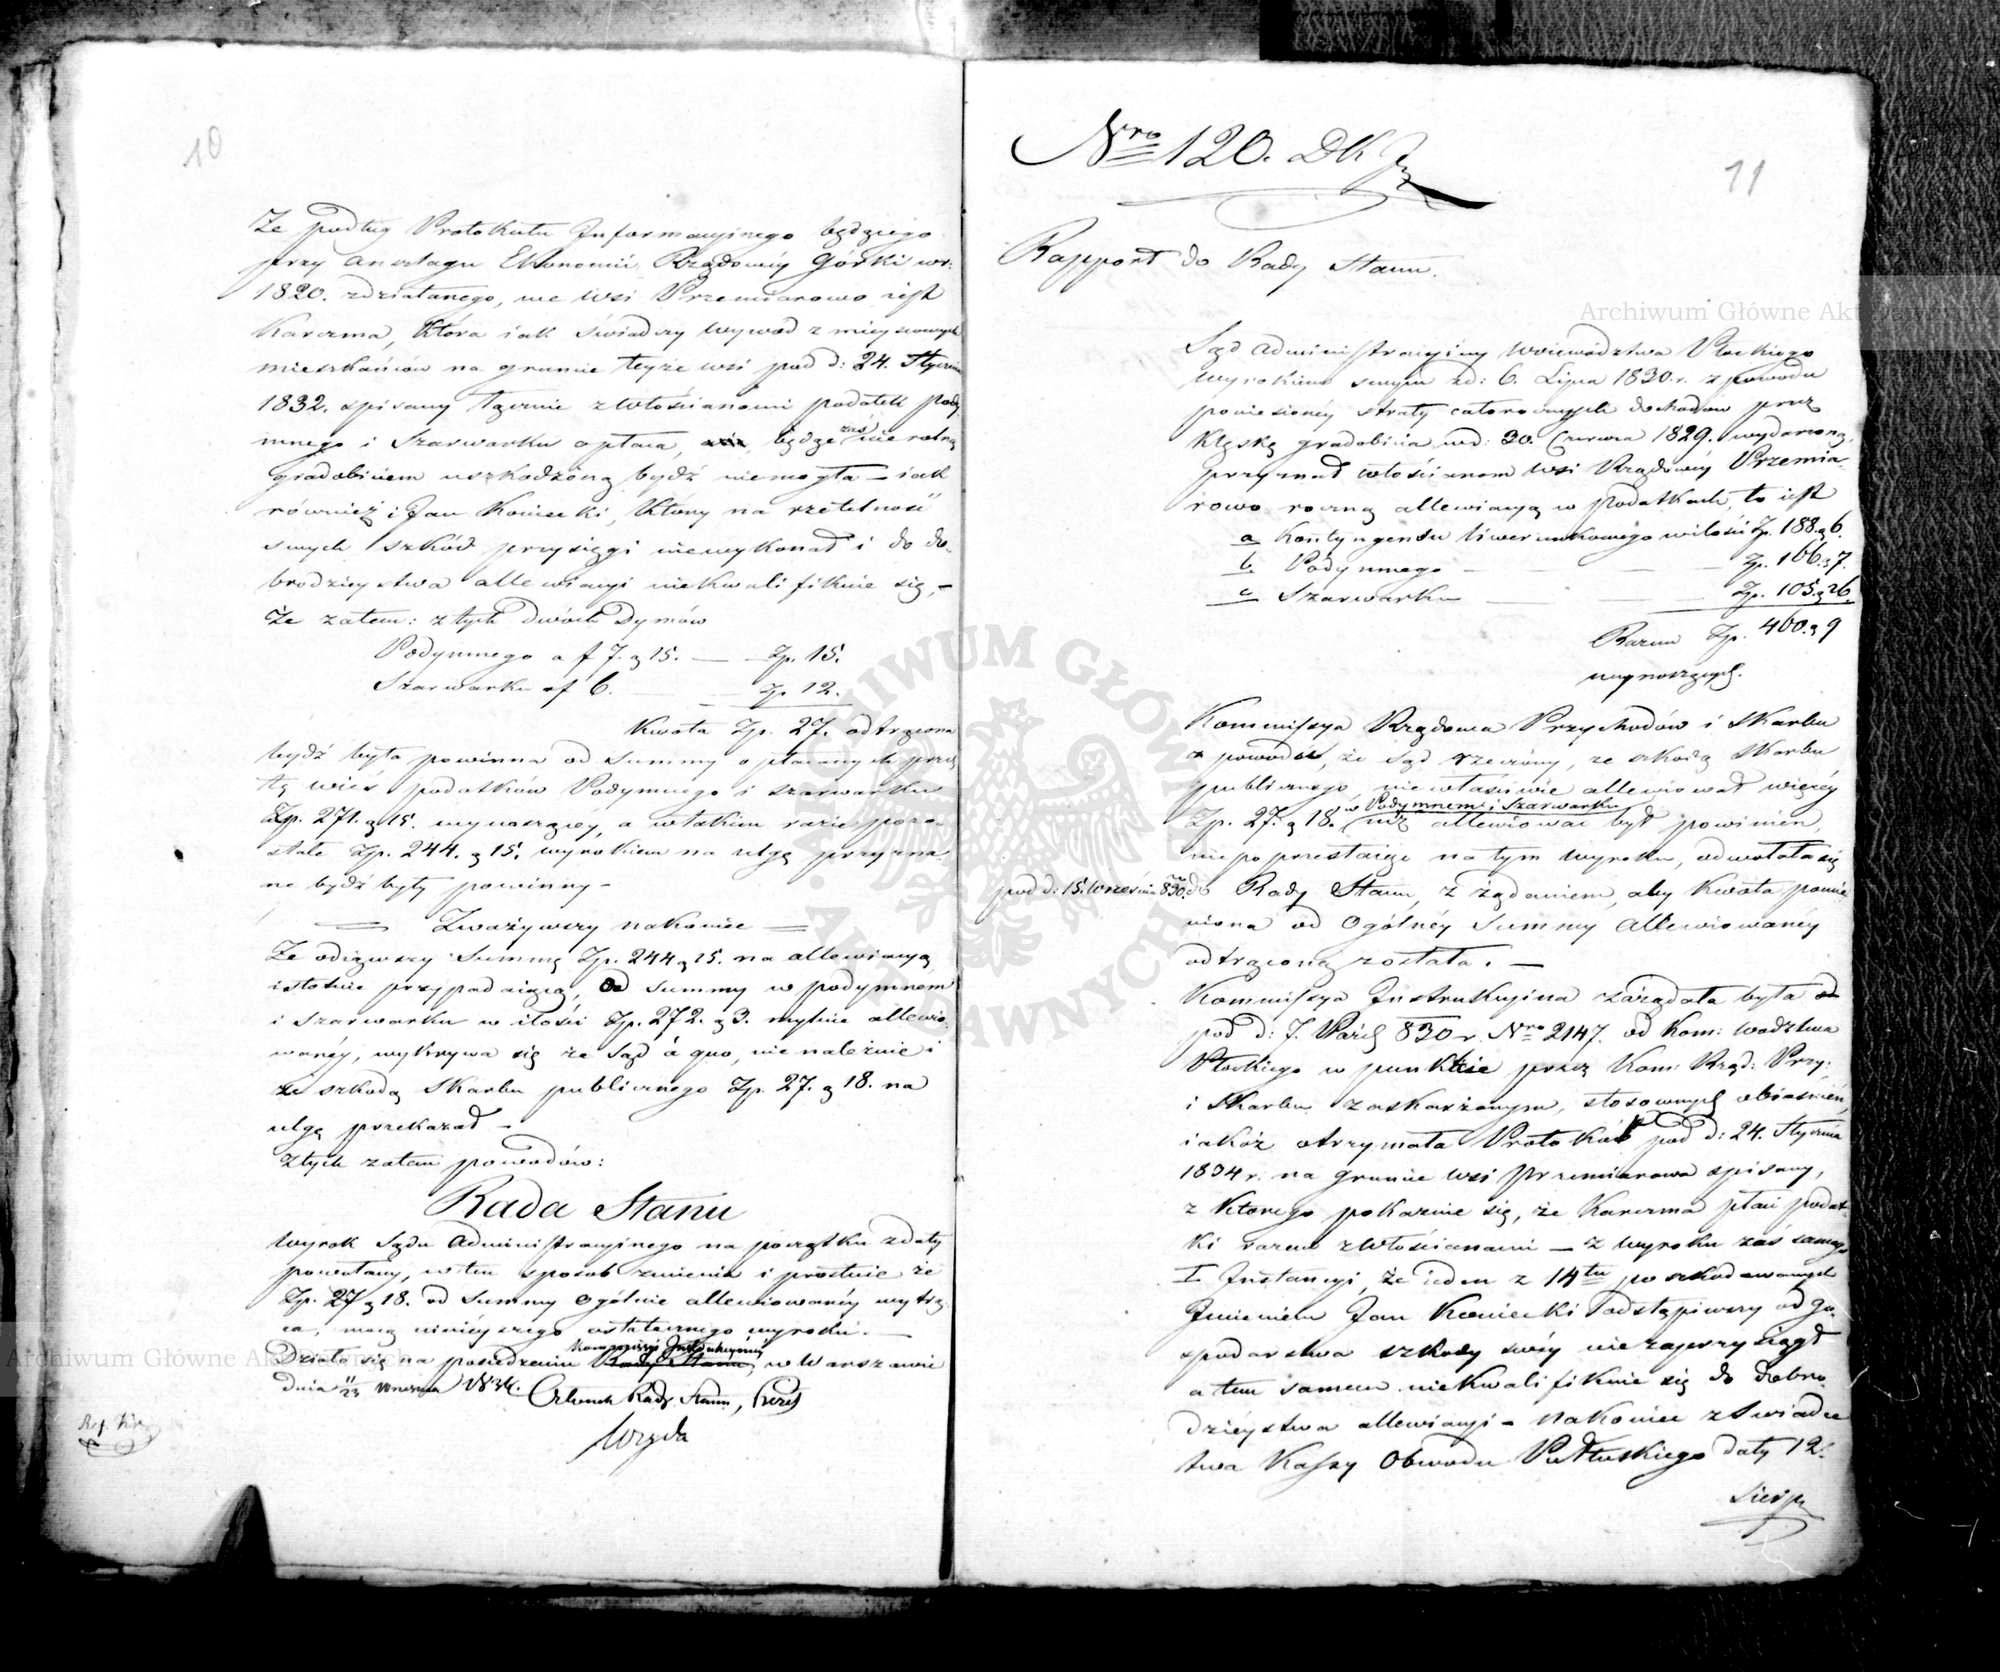 10
Że podług Protokułu Informacyjnego będącego
przy anszlagu Ekonomii Rządowéy Górki w r:
1820. zdziałanego, we wsi Przemiarowo iest
Karczma, która iak świadczy wywód z mieyscowych
mieszkańców na gruncie teyże wsi pod d: 24. Stycznia
1832. spisany łącznie z włościanami podatek pody
mnego i Szarwarku opłaca, będąc zaś nie rolną
gradobiciem uszkodzoną bydź niemogła – iak
również i Jan Koniecki, który na rzetelność
swych szkód przysięgi niewykonał i do do-
brodzieystwa allewiacyi niekwalifikuie się, –
Że zatem: z tych dwóch Dymów
Podymnego a f 7. g 15. — — Zp. 15.
Szarwarku a f 6. — — Zp 12.
Kwota Zp. 27. odtrącona
bydź była powinna od Summy opłacanych przez
tę wieś podatków Podymnego i szarwarku
Zp. 271. g 15. wynoszącey, a w takim razie pozo-
stałe Zp. 244. g 15. wyrokiem na ulgę przyzna-
ne bydź były powinny –
= Zważywszy nakoniec =
Że odiąwszy Summę Zp. 244 g 15. na allewiacyą
istotnie przypadaiącą, od Summy w podymnem
i szarwarku w ilości Zp. 272. g 3. mylnie allewio-
wanéy, wykrywa się że Sąd à quo, nienależnie i
ze szkodą Skarbu publicznego Zp. 27. g 18. na
ulgę przekazał –
Z tych zatem powodów:
Rada Stanu
Wyrok Sądu Administracyjnego na początku z daty
powołany, w ten sposób zmienia i prostuie że
Zp. 27 g 18. od Summy ogólnie allewiowanéy wytrą-
ca, mocą ninieyszego ostatecznego wyroku. —
Kommissyi Instrukcyinéy
Działo się na posiedzeniu Rady Stanu, w Warszawie
dnia 11/23 Września 1834. Członek Rady Stanu, Prezes
Wyzda
11
Nro 120. DK
Rapport do Rady Stanu.
Sąd administracyiny Woiewództwa Płockiego
wyrokiem swym z d: 6. Lipca 1830. r. z powodu
poniesionéy straty całorocznych dochodów przez
klęskę gradobicia w d: 30. Czerwca 1829. wydarzoną,
przyznał włościanom wsi Rządowéy Przemia-
rowo roczną allewiacyą w podatkach, to iest
a Kontyngensu liwerunkowego w ilości Zp. 188. g 6.
b Podymnego — — — Zp. 166. g 7.
c Szarwarku — — — Zp. 105. g 26.
Razem Zp. 460. g 9
wynoszących.
Kommissya Rządowa Przychodów i Skarbu
z powodu, że Sąd rzeczony, ze szkodą Skarbu
publicznego, niewłaściwie allewiował więcéy
w Podymnem i Szarwarku
Zp. 27. g 18. niż allewiować był powinien,
niepoprzestaiąc na tym wyroku, odwołała się
pod d: 15. Września 830. do Rady Stanu, z żądaniem, aby kwota pomie
niona od Ogólnéy Summy allewiowanéy
odtrąconą została. —
Kommissya Instrukcyina zażądała była
pod d: 7. Paźd 830 r. Nro 2147. od Kom: Wodztwa
Płockiego w punkcie przez Kom: Rząd: Przy:
i Skarbu zaskarżonym, stosownych obiaśnień,
iakoż otrzymała Protokół pod d: 24. Stycznia
1834 r. na gruncie wsi Przemiarowa spisany,
z którego pokazuie się, że Karczma płaci podat-
ki razem z włościanami – z wyroku zaś samego
I Instancyi, że ieden z 14tu poszkodowanych
Imieniem Jan Koniecki odstąpiwszy od go-
spodarstwa szkody swéy niezaprzysiągł
a tem samem niekwalifikuie się do dobro-
dzieystwa allewiacyi – nakoniec z świade
twa Kassy Obwodu Pułtuskiego daty 12.
Sierp